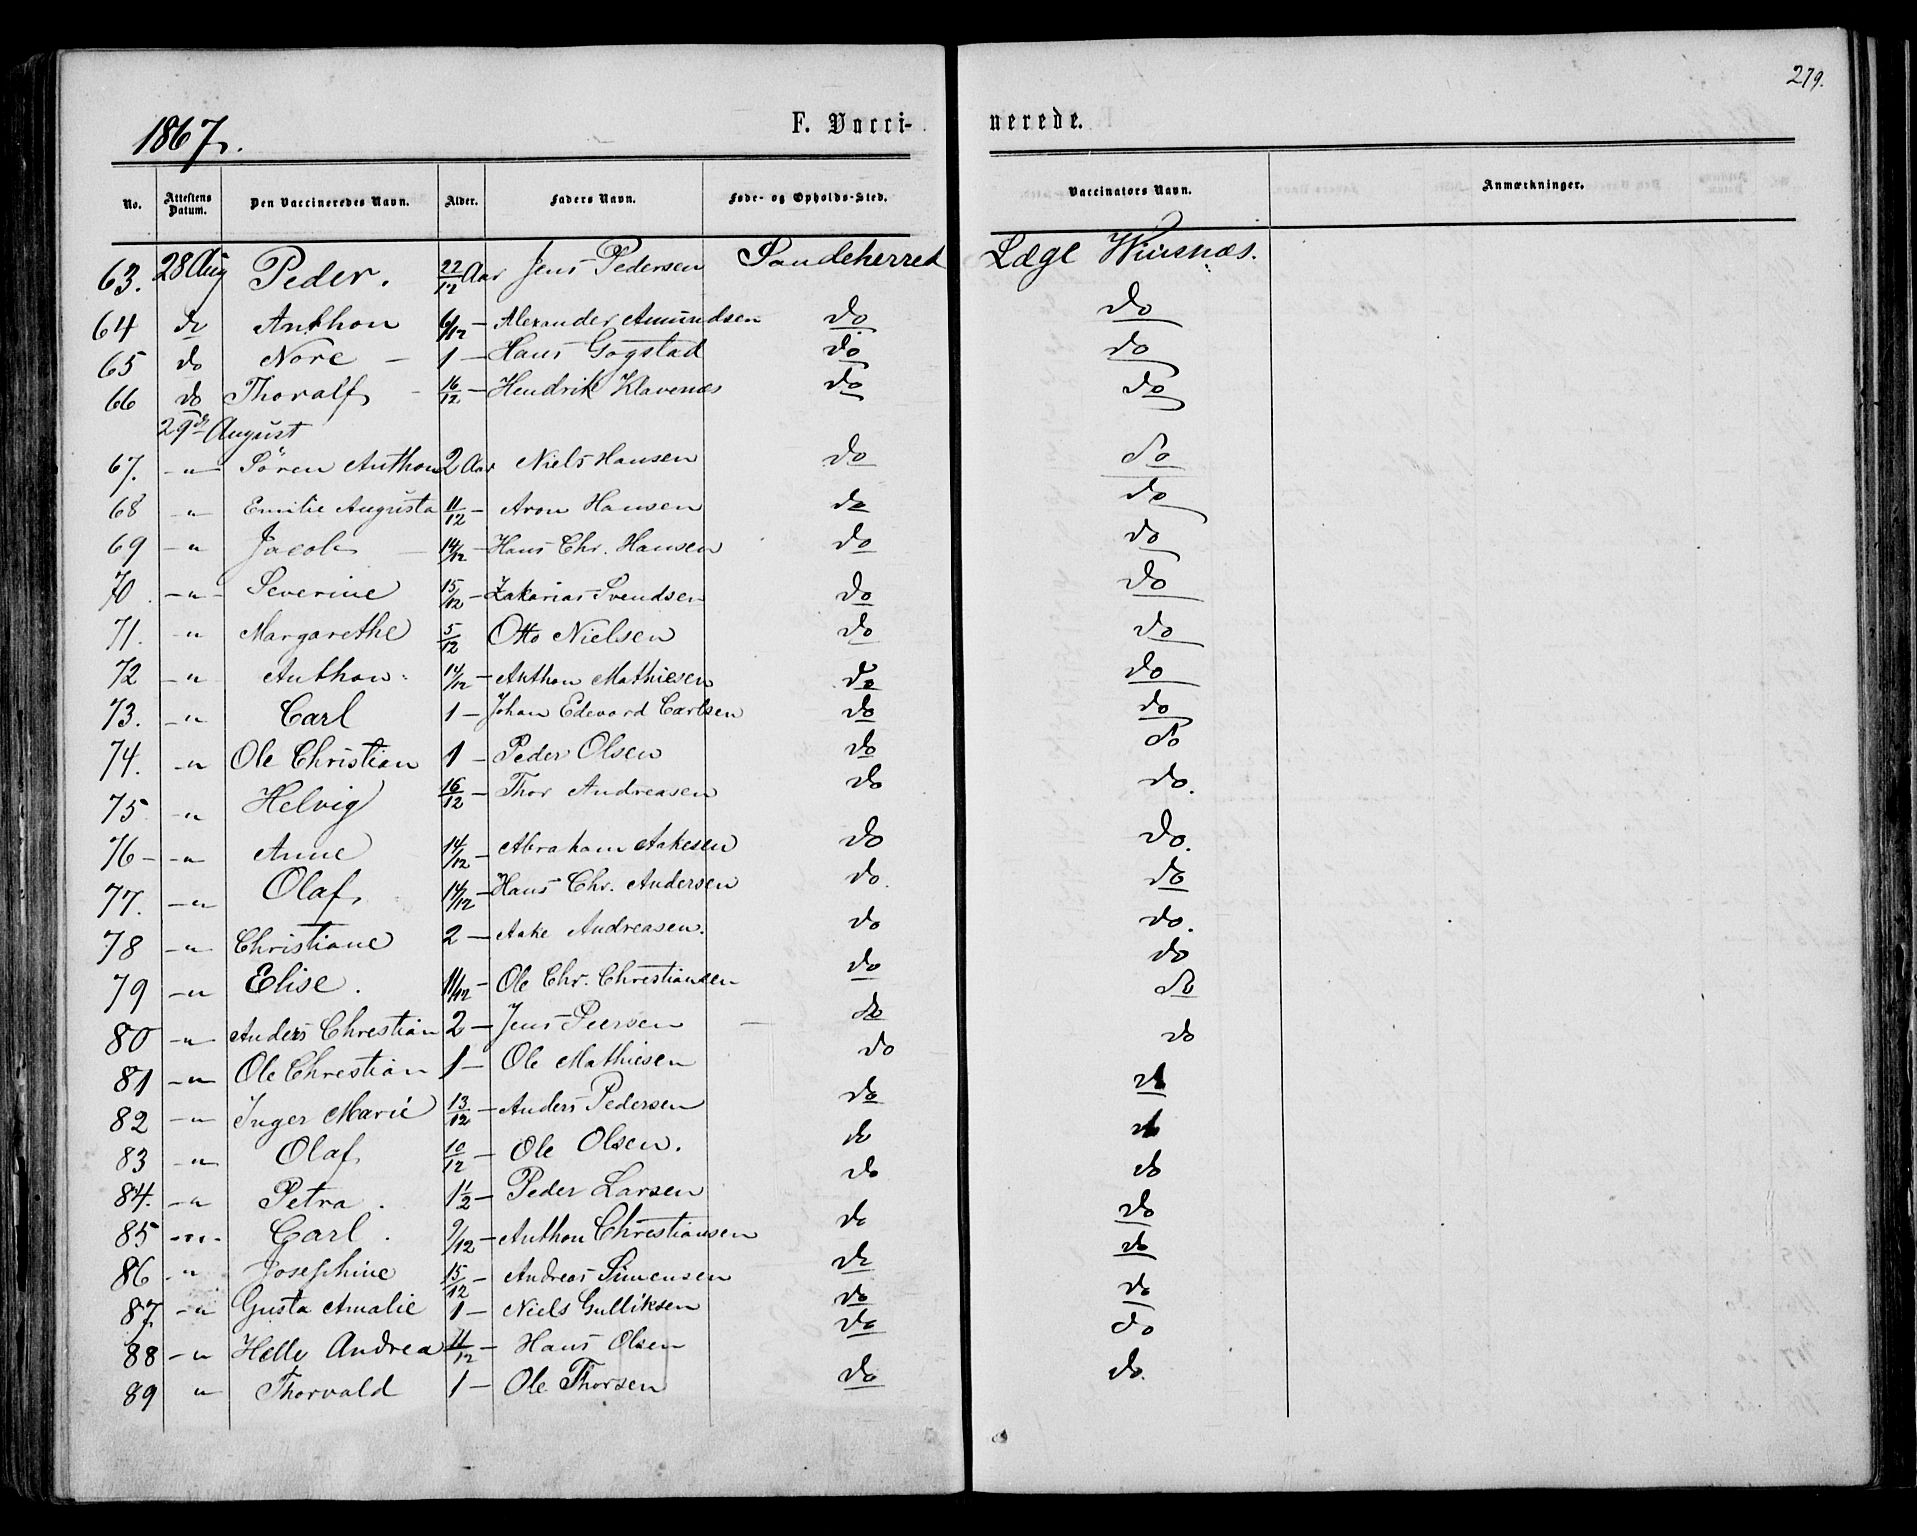 279.
1867.
F. Vacci-nerede.
No. Attestens Datum. Den Vaccineredes Navn. Alder. Faders Navn. Føde- og Opholds-Sted. Vaccinators Navn. Anmærkninger.
63. 28 Aug Peder. 22/12 Aar Jens Pedersen Sandeherred Læge
64 do Anthon 6/12 – Alexander Amundsen do do
65 do Nore – 1 – Hans Gogstad do do
66 do Thoralf – 16/12 – Hendrik Klavenæs do do
29de August
67. –„– Søren Anthon 2 Aar Niels Hansen do do
68 –„– Emilie Augusta 11/12 – Aron Hansen do do
69 –„ Jacob – 14/12 – Hans Chr. Hansen do do
70 –„– Severine 15/12 – Zakarias Svendsen do do
71. –„ Margarethe 5/12 Otto Nielsen do do
72 –„ Anthon 14/12 – Anthon Mathiesen do do
73. –„ Carl 1 – Johan Edevard Carlsen do do
74. –„ Ole Christian 1 – Peder Olsen do do
75 –„ Helvig 16/12 – Thor Andreasen do do.
76 – –„ Anne 14/12 – Abraham Aakesen do do.
77. –„ Olaf 14/12 – Hans Chr. Andersen do. do
78 –„ Christiane 2 – Aake Andreasen. do do.
79 –„ Elise. 11/12 – Ole Chr. Christiansen do do
80 –„ Anders Christian 2 – Jens Peersen – do do
81 –„ Ole Christian 1 – Ole Mathiesen do do
82 –„ Inger Marie 13/12 – Anders Pedersen do do
83 –„ Olaf 10/12 – Ole Olsen. do do
84. –„ Petra. 1 1/2 – Peder Larsen do do
85 –„– Carl. 9/12 – Anthon Christiansen do do
86 –„ Josephine 15/12 – Andreas Simensen do do
87. –„ Gusta Amalie 1 – Niels Gulliksen do do
88 –„ Helle Andrea 11/12 – Hans Olsen do do
89 „ Thorvald 1 – Ole Thorsen do do.